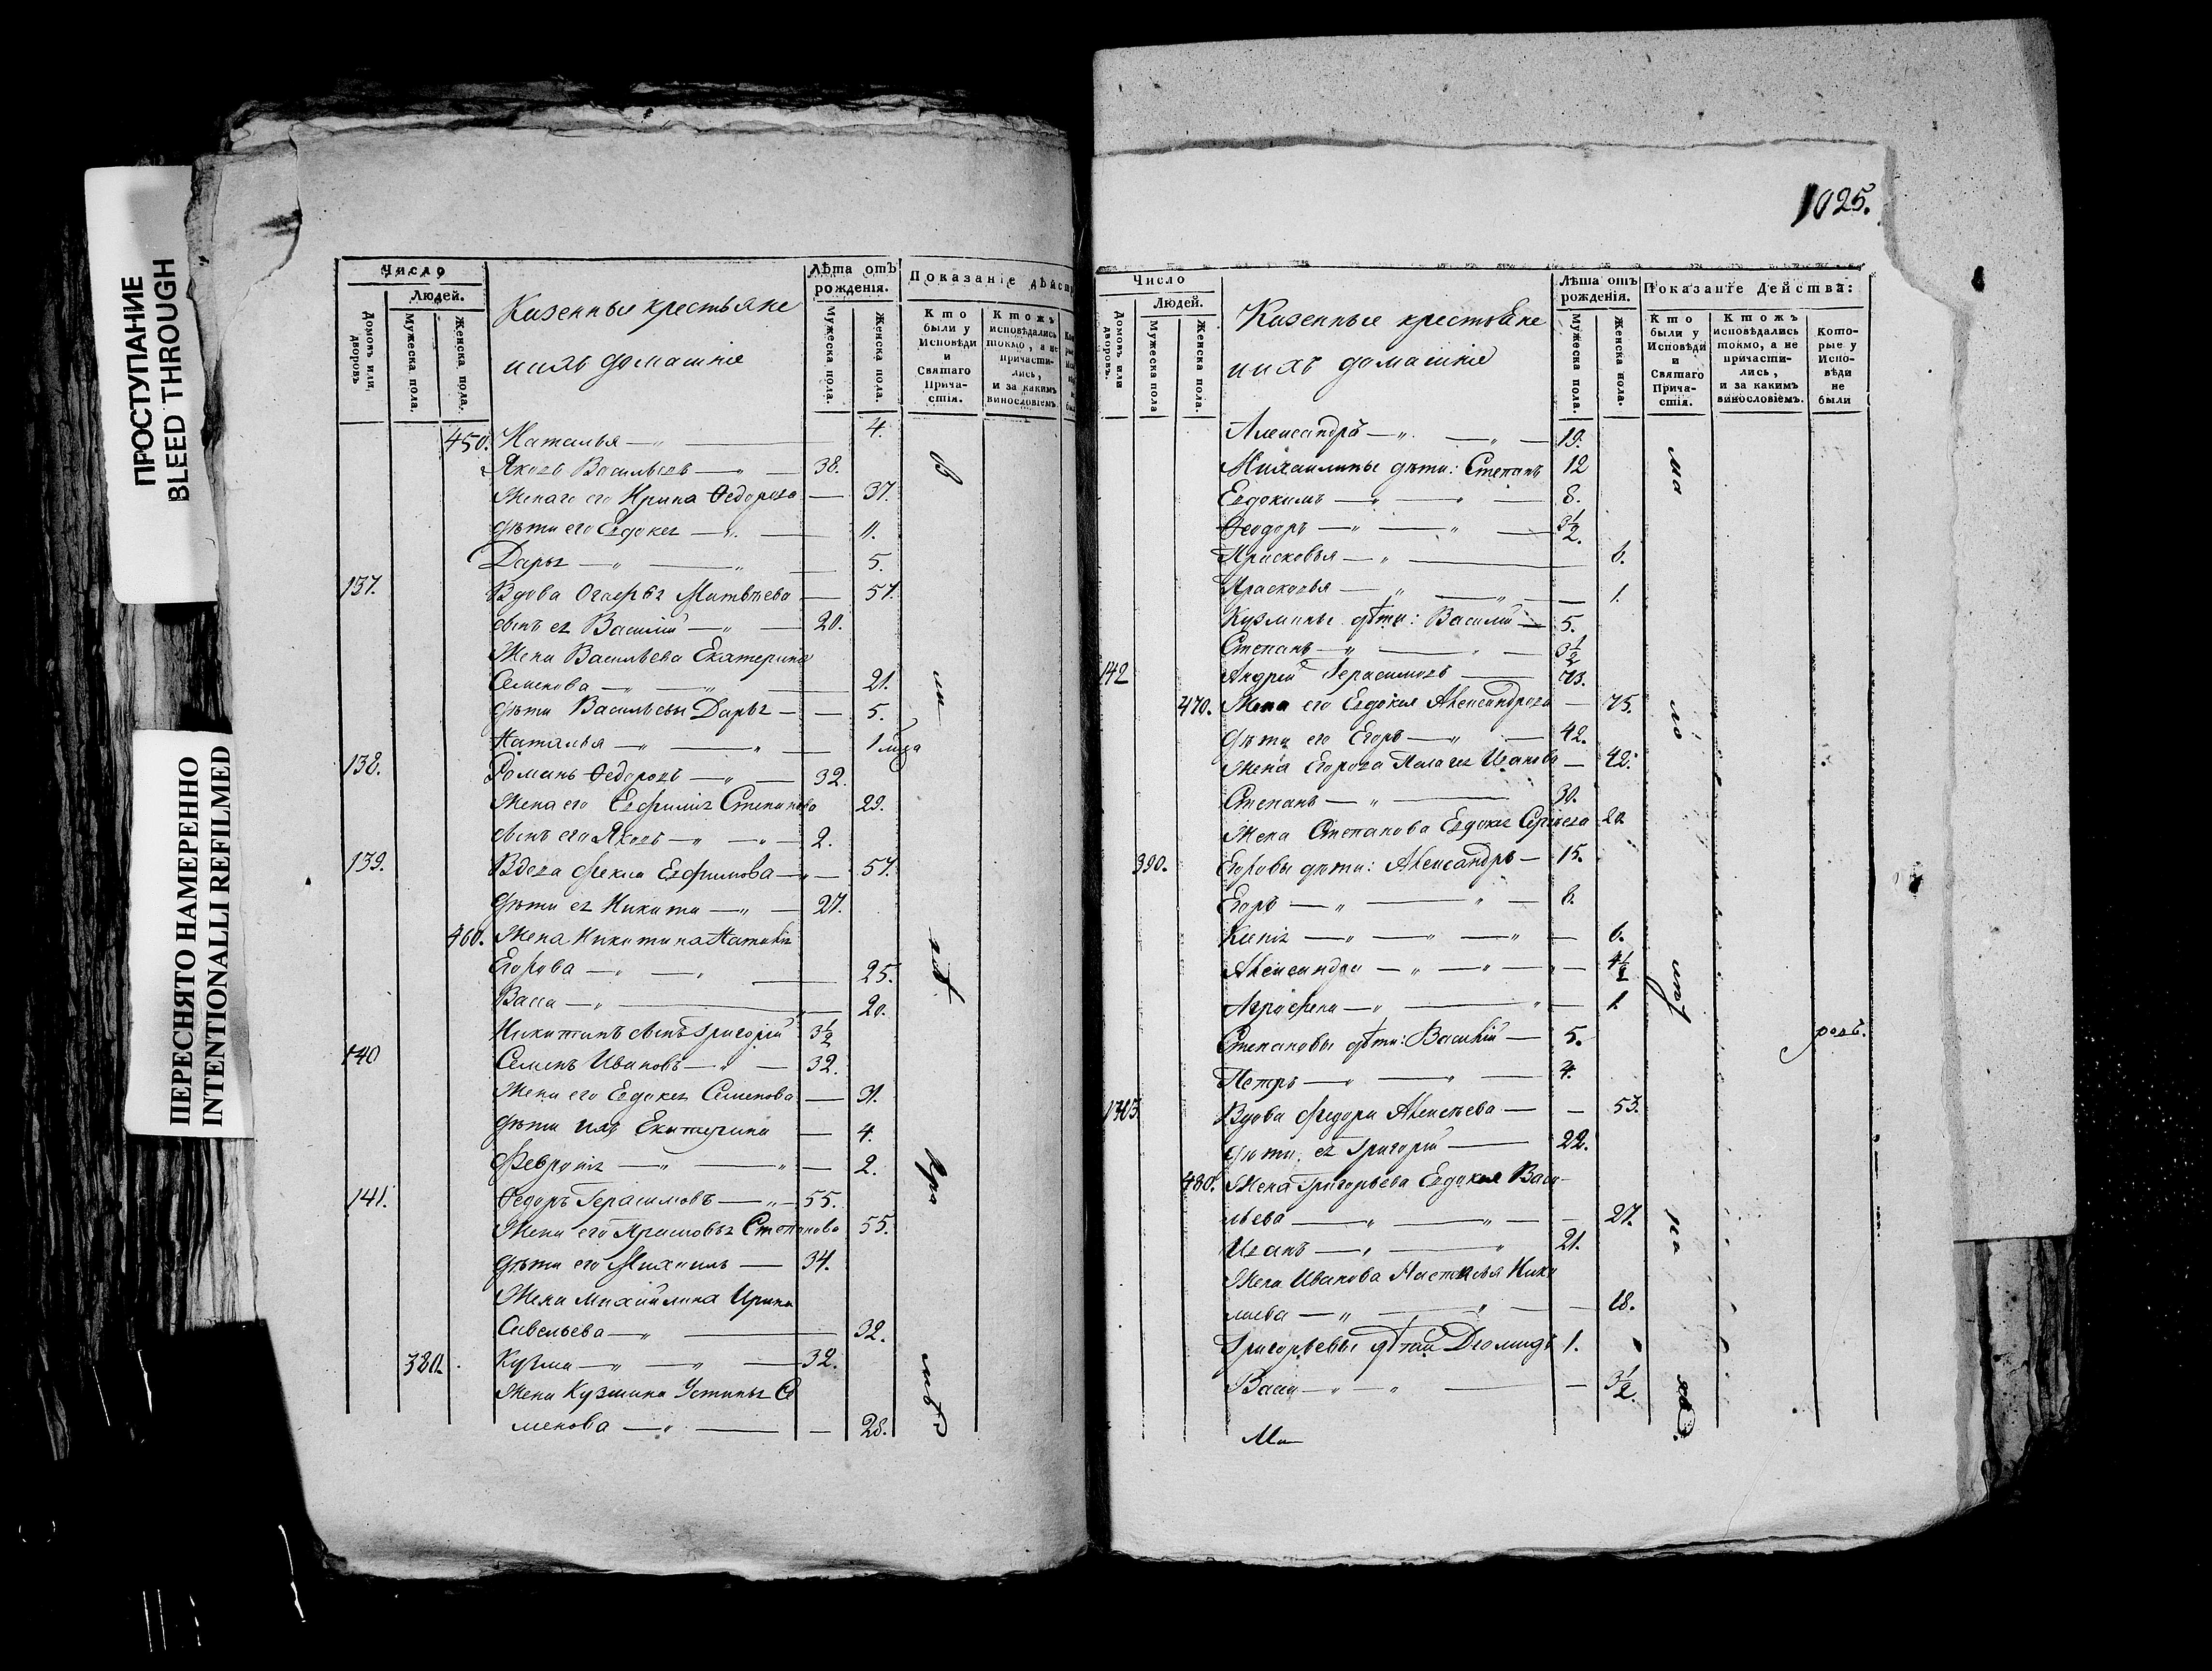 ПРОСТУПАНИЕ
BLEED THROUGH
ПЕРЕСНЯТО НАМЕРЕННО
INTENTIONALLI REFILMED
Число
Людей.
Домовъ или дворовъ
Мужеска пола.
Женска пола.
Казенные крестьяне
и ихъ домашніе
Лѣта отъ рожденія.
Мужеска пола.
Женска пола.
Показаніе дѣйст
Кто были у Исповѣди и Святаго Причастія.
Ктожъ исповѣдались токмо, а не причастились, и за какимъ винословіемъ.
450. Наталья —„— 4.
Яковъ Васильевъ —„— 38.
Жена его Ирина Ѳедорова — 37.
Дѣти его Евдокея —„— 11.
Дарья —„— —„— 5.
137. Вдова Матвѣева — 57.
сынъ ея Василій —„— 20.
Жена Васильева Екатерина
Семенова —„— —„— 21.
Дѣти Васильевы Дарья — 5.
Наталья —„— —„— 1
138. Романъ Ѳедоровъ —„— 32.
Жена его Евфимия Степанова 29.
сынъ его Яковъ —„— —„— 2.
139. Вдова Фекла Евфимова —„— 57.
Дѣти ея Никита —„— 27.
460. Жена Никитина
Егорова —„— —„— 25.
Васса —„— 20.
Никитинъ сынъ Григорій 3½
140 Семенъ Ивановъ —„— 32.
Жена его Евдокея Семенова — 31.
Дѣти ихъ Екатерина — 4.
Феврония —„— —„— 2.
141. Ѳедоръ Герасимовъ —„— 55.
Жена его Прасковья Степанова 55.
Дѣти его Михаилъ — 34.
Жена Михайлина Ирина
Савельева —„— 32.
380. Кузма —„— —„— 32.
Жена Кузмина Устинья Се
менова —„— 28.
1025.
Число
Людей.
Домовъ или дворовъ.
Мужеска пола
Женска пола.
Казенные крестьяне
и ихъ домашніе
Лѣта отъ рожденія.
Мужеска пола.
Женска пола.
Показанїе Действа:
Кто были у Исповѣди и Святаго Причастія.
Ктожъ исповѣдались токмо, а не причастились, и за какимъ винословіемъ.
Которые у Исповѣди не были
Александръ —„— —„— 19.
Михаилины дѣти: Степанъ 12
Евдокимъ —„— —„— 8.
Ѳеодоръ —„— —„— 3½.
Прасковья —„— 6.
Прасковья —„— —„— 1.
Кузмины дѣти: Василій — 5.
Степанъ —„— —„— 3½
142 Андрей Герасимовъ — 73.
470. Жена его Евдокея Александрова — 75.
Дѣти его Егоръ —„— 42.
Жена Егорова Пелагея Иванова — 42.
Степанъ —„— 30.
Жена Степанова Евдокея
390. Егоровы дѣти: Александръ — 15.
Егоръ —„— —„— 6.
Ксенія —„— —„— —„— 6.
Александра —„— —„— 4½
Аграфена —„— —„— 1.
Степановы дѣти: Василій — 5.
Петръ —„— —„— 4.
Вдова Федора Алексѣева — 53.
Дѣти ея Григорій — 22.
480. Жена Григорьева Евдокея Васи-
льева —„— —„— 27.
Иванъ —„— —„— 21.
Жена Иванова Настасья Нико
лаева —„— —„— 18.
Григорьевы дѣти 1.
Васса —„— —„— 3½.